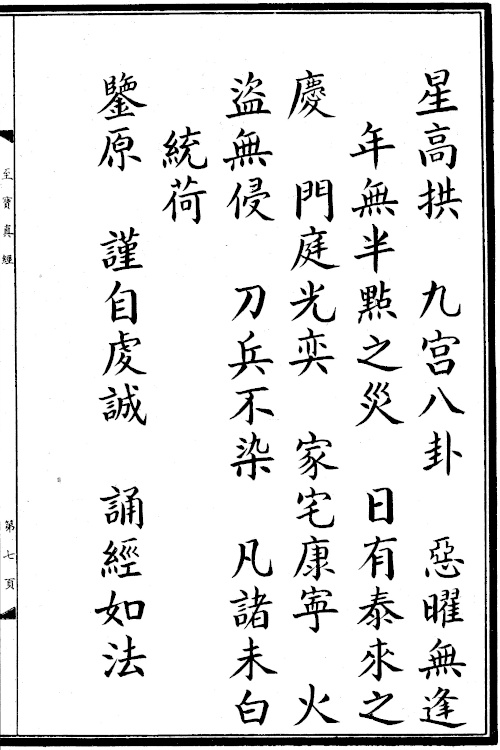 星高拱　九宮八卦　惡曜無逢
年無半點之災　日有泰來之
慶　門庭光奕　家宅康寧　火
盜無侵　刀兵不染　凡諸未白
統荷
鑒原　謹自虔誠　誦經如法
至寶真經
第七頁